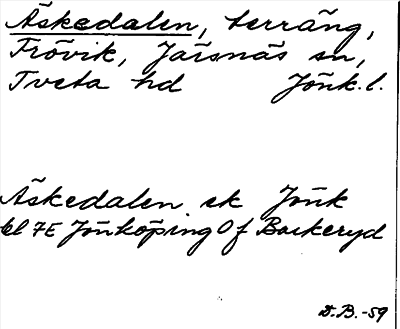 Äskedalen, terräng,
Frövik, Järsnäs sn,
Tveta hd Jönk. l.
Äskedalen ek Jönk
bl 7E Jönköping Of Backeryd
D.B.-59